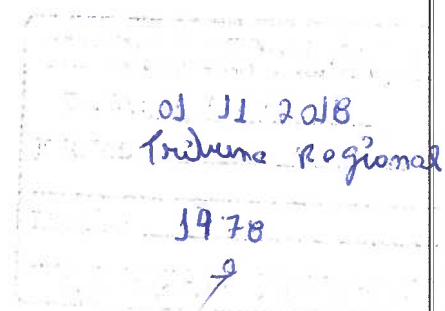 01 11 2018
Tribuna Regional
1978